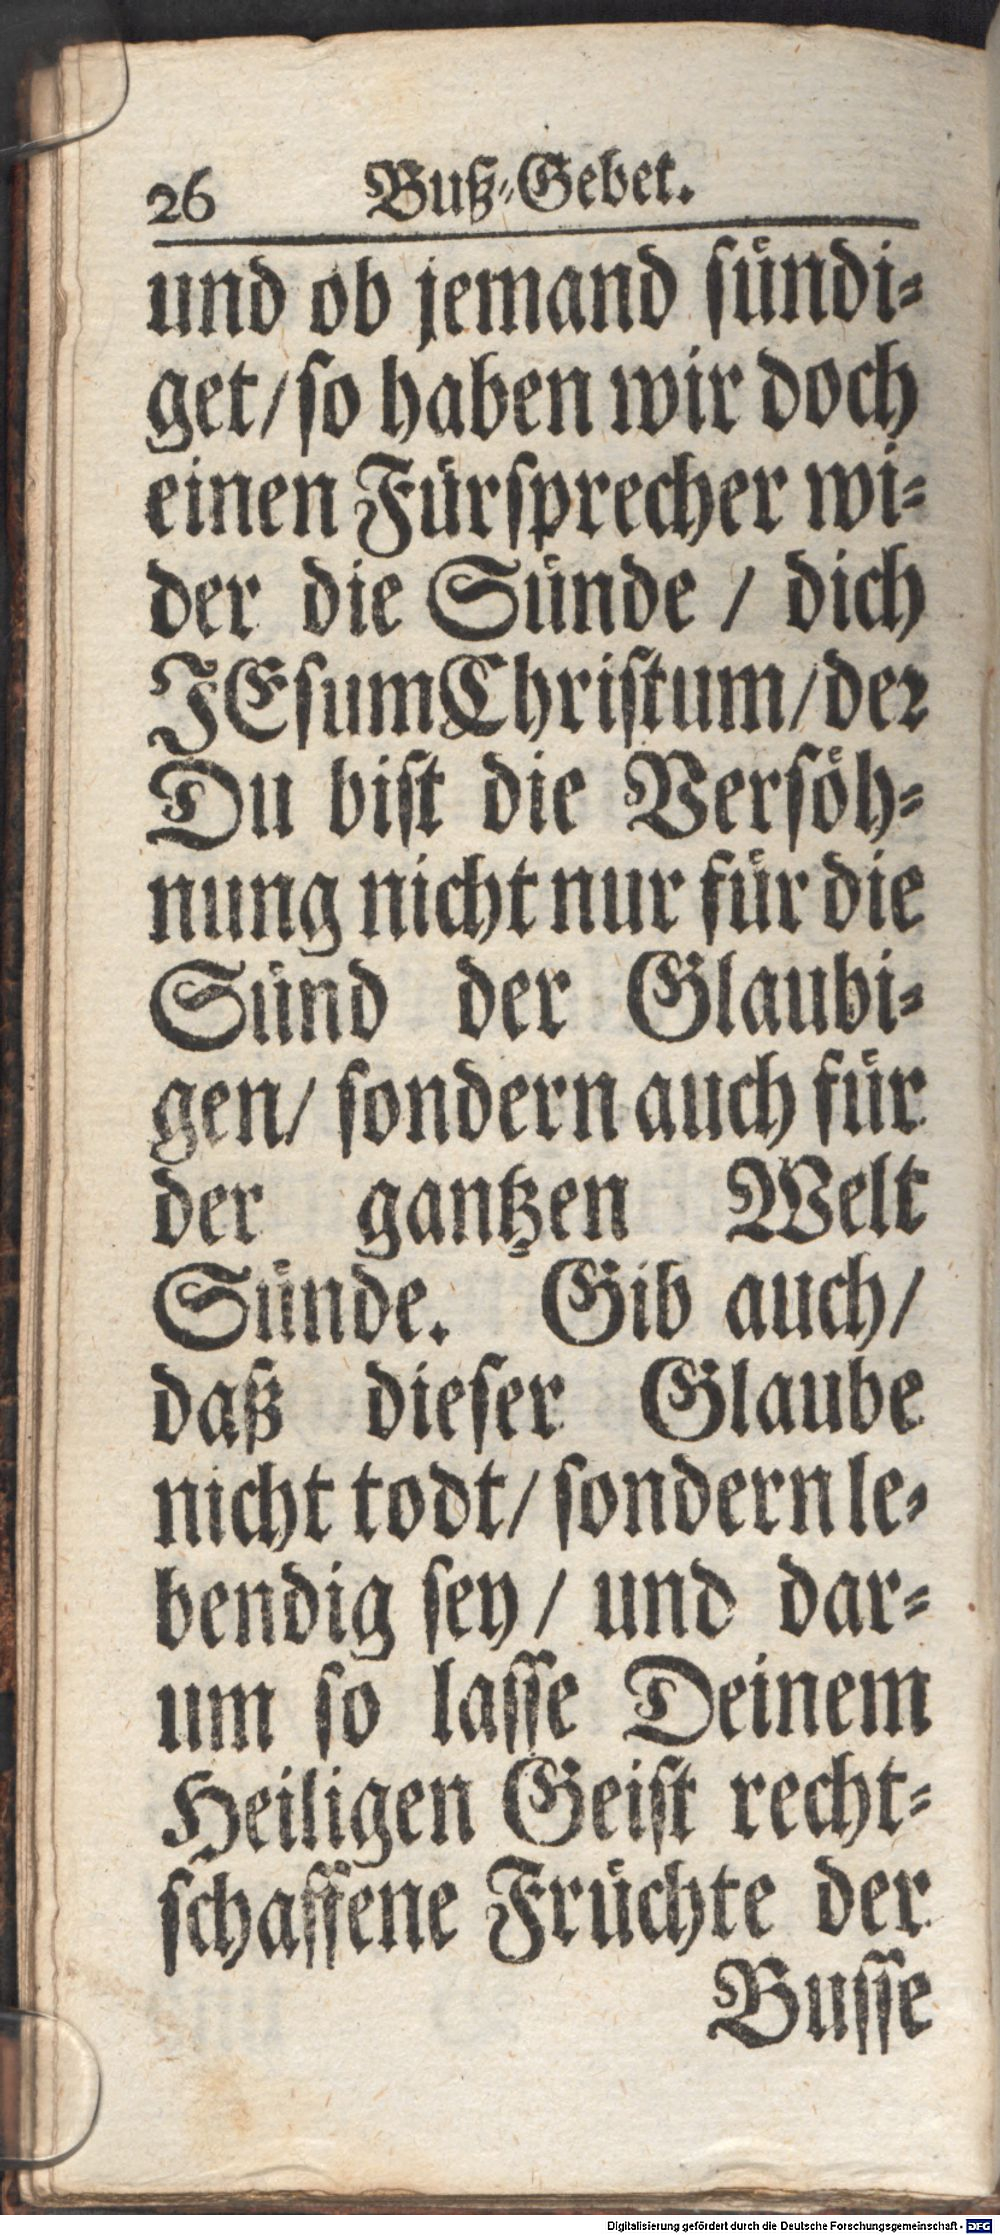 26 Buß-Gebet.
und ob jemand sündi-
get/ so haben wir doch
einen Fürsprecher wi-
der die Sünde / dich
JEsum Christum/ der
Du bist die Versöh-
nung nicht nur für die
Sünd der Glaubi-
gen/ sondern auch für
der gantzen Welt
Sünde. Gib auch/
daß dieser Glaube
nicht todt/ sondern le-
bendig sey / und dar-
um so lasse Deinem
Heiligen Geist recht-
schaffene Früchte der
Busse
Digitalisierung gefördert durch die Deutsche Forschungsgemeinschaft - DFG